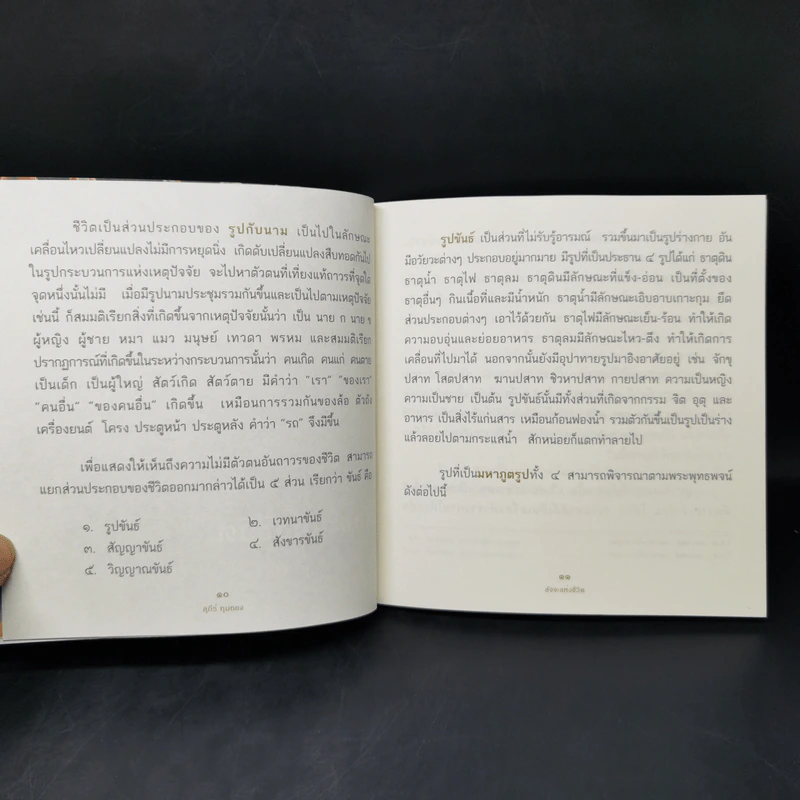 ชีวิตเป็นส่วนประกอบของ รูปกับนาม เป็นไปในลักษณะ
เคลื่อนไหวเปลี่ยนแปลงไม่มีการหยุดนิ่ง เกิดดับเปลี่ยนแปลงสืบทอดกันไป
ในรูปกระบวนการแห่งเหตุปัจจัย จะไปหาตัวตนที่เที่ยงแท้ถาวรที่จุดใด
จุดหนึ่งนั้นไม่มี เมื่อมีรูปนามประชุมรวมกันขึ้นและเป็นไปตามเหตุปัจจัย
เช่นนี้ ก็สมมติเรียกสิ่งที่เกิดขึ้นจากเหตุปัจจัยนั้นว่า เป็น นาย ก นาย ข
ผู้หญิง ผู้ชาย หมา แมว มนุษย์ เทวดา พรหม และสมมติเรียก
ปรากฏการณ์ที่เกิดขึ้นในระหว่างกระบวนการนั้นว่า คนเกิด คนแก่ คนตาย
เป็นเด็ก เป็นผู้ใหญ่ สัตว์เกิด สัตว์ตาย มีคำว่า "เรา" "ของเรา"
"คนอื่น" "ของคนอื่น" เกิดขึ้น เหมือนการรวมกันของล้อ ตัวถัง
เครื่องยนต์ โครง ประตูหน้า ประตูหลัง คำว่า "รถ" จึงมีขึ้น
เพื่อแสดงให้เห็นถึงความไม่มีตัวตนอันถาวรของชีวิต สามารถ
แยกส่วนประกอบของชีวิตออกมากล่าวได้เป็น ๕ ส่วน เรียกว่า ขันธ์ คือ
๑. รูปขันธ์ ๒. เวทนาขันธ์
๓. สัญญาขันธ์ ๔. สังขารขันธ์
๕. วิญญาณขันธ์
๑๐
สุภีร์ ทุมทอง
รูปขันธ์ เป็นส่วนที่ไม่รับรู้อารมณ์ รวมขึ้นมาเป็นรูปร่างกาย อัน
มีอวัยวะต่างๆ ประกอบอยู่มากมาย มีรูปที่เป็นประธาน ๔ รูปได้แก่ ธาตุดิน
ธาตุน้ำ ธาตุไฟ ธาตุลม ธาตุดินมีลักษณะที่แข็ง-อ่อน เป็นที่ตั้งของ
ธาตุอื่นๆ กินเนื้อที่และมีน้ำหนัก ธาตุน้ำมีลักษณะเอิบอาบเกาะกุม ยึด
ส่วนประกอบต่างๆ เอาไว้ด้วยกัน ธาตุไฟมีลักษณะเย็น-ร้อน ทำให้เกิด
ความอบอุ่นและย่อยอาหาร ธาตุลมมีลักษณะไหว-ตึง ทำให้เกิดการ
เคลื่อนที่ไปมาได้ นอกจากนั้นยังมีอุปาทายรูปมาอิงอาศัยอยู่ เช่น จักขุ
ปสาท โสตปสาท ฆานปสาท ชิวหาปสาท กายปสาท ความเป็นหญิง
ความเป็นชาย เป็นต้น รูปขันธ์นั้นมีทั้งส่วนที่เกิดจากกรรม จิต อุตุ และ
อาหาร เป็นสิ่งไร้แก่นสาร เหมือนก้อนฟองน้ำ รวมตัวกันขึ้นเป็นรูปเป็นร่าง
แล้วลอยไปตามกระแสน้ำ สักหน่อยก็แตกทำลายไป
รูปที่เป็นมหาภูตรูปทั้ง ๔ สามารถพิจารณาตามพระพุทธพจน์
ดังต่อไปนี้
๑๑
สัจจะแห่งชีวิต